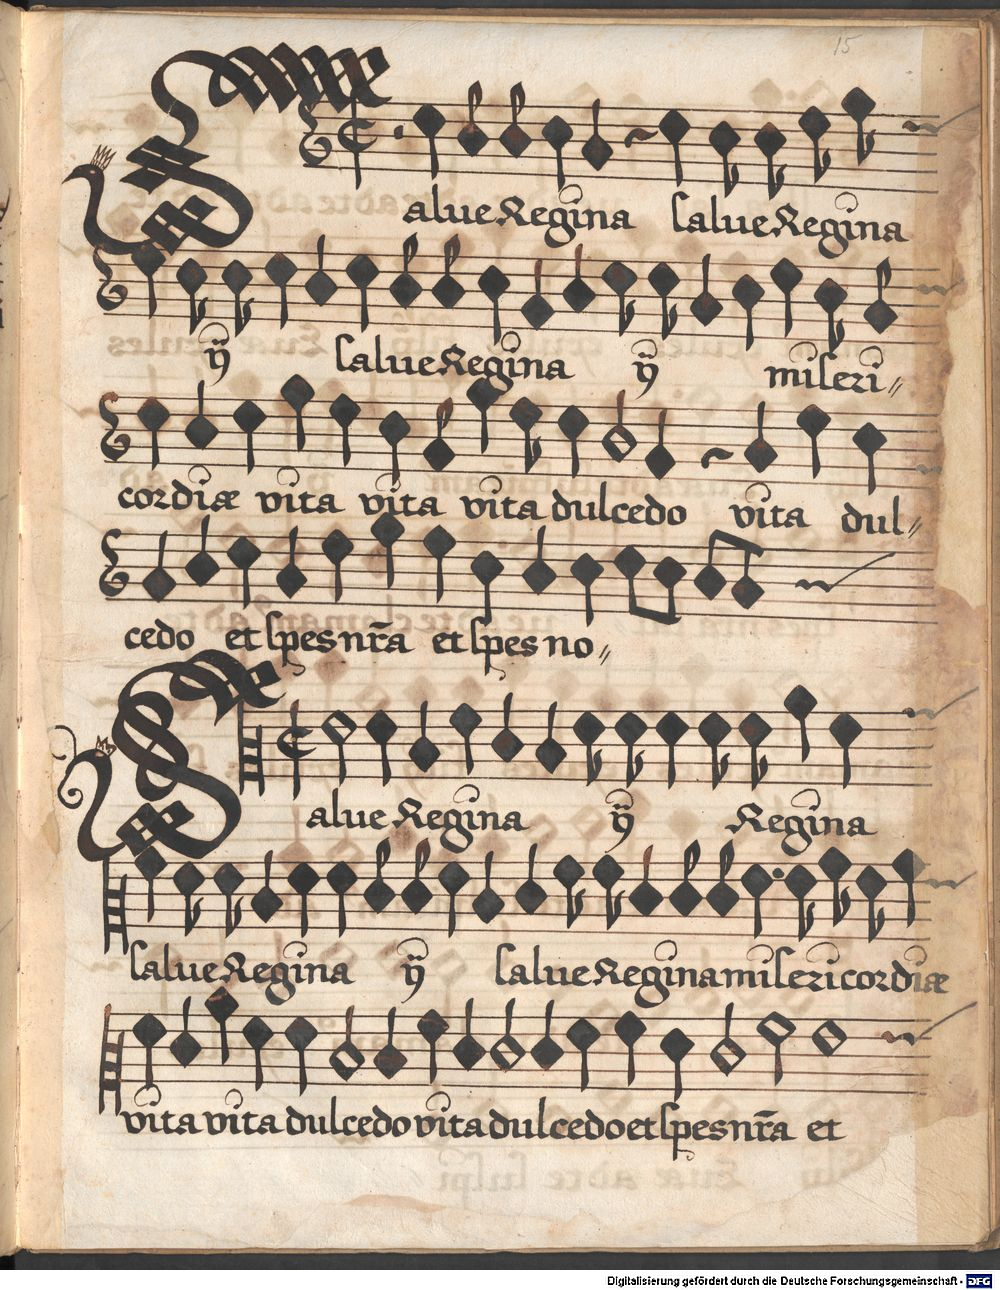 15
Salve Regina Salve Regina
ÿ Salve Regina ÿ miseri //
cordiæ vita vita vita dulcedo vita dul //
cedo et spes nr̃a et spes no //
Salve Regina ÿ Regina
Salve Regina ÿ Salve Regina misericordiæ
vita vita dulcedo vita dulcedo et spes nr̃a et
Digitalisierung gefördert durch die Deutsche Forschungsgemeinschaft - DFG